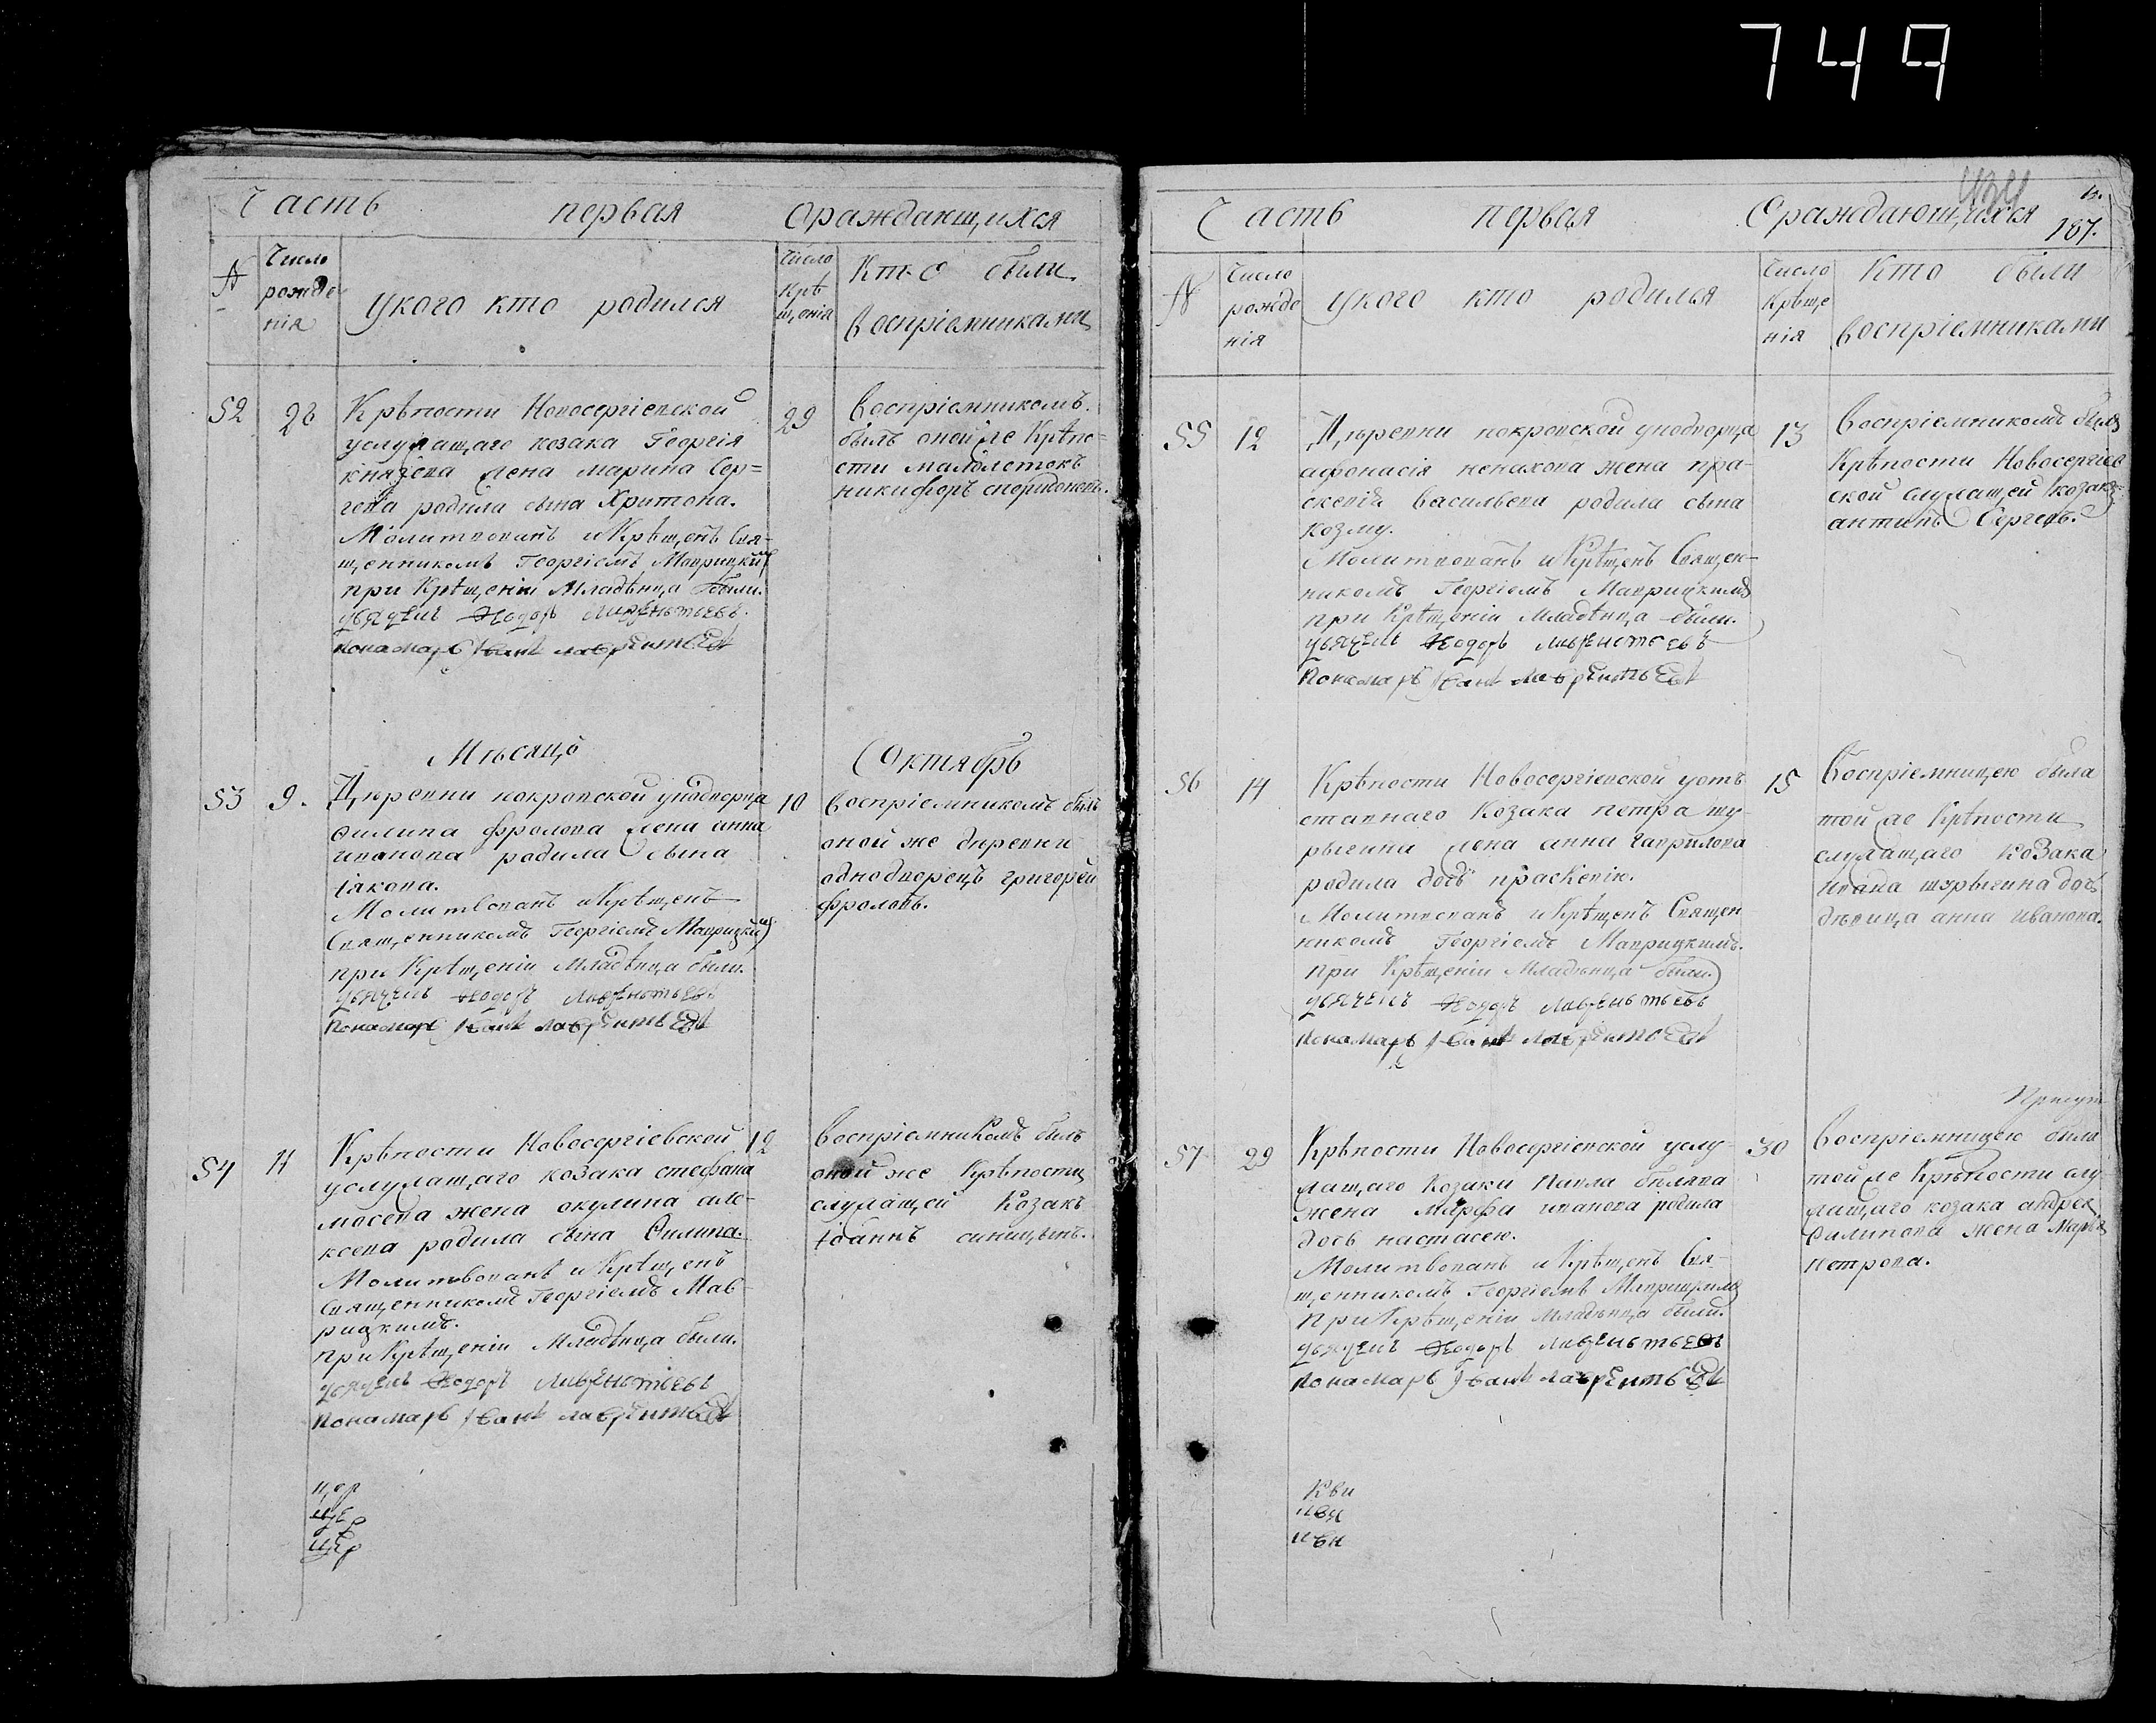 749
Часть первая ораждающихся
N
Число
рожде
нія
укого кто родился
Число
Крѣ
щенія
Кто были
воспріемниками
52
28
Крѣпости Новосергіевской
услужащаго козака Георгія
князева жена марина Сер=
геева родила сына Харитона.
Молитвованъ и Крѣщенъ Свя-
щенникомъ Георгіемъ Маврицкимъ
при Крѣщеніи Младѣнца были.
дьячекъ Ѳеодоръ Лаврентьевъ
понамарь Iванъ лаврентьевъ
29
воспріемникомъ.
былъ оной же Крѣпо=
сти малолетокъ
никифоръ спиридоновъ.
Мѣсяцъ Октябрь
53
9.
Дѣревни покровской уподворца
филипа фролова жена анна
иванова родила сына
іякова.
Молитвованъ и Крѣщенъ
Священникомъ Георгіемъ Маврицкимъ
при Крѣщеніи Младѣнца были.
дьячекъ Ѳеодоръ Лаврентьевъ
понамарь Iванъ лаврентьевъ
10
воспріемникомъ былъ
оной же дѣревни
однодворецъ григорей
фроловъ.
54
11
Крѣпости Новосергіевской
услужащаго козака стефана
мосева жена окулина але-
ксева родила сына Филипа.
Молитвованъ и Крѣщенъ
Священникомъ Георгіемъ Мав-
рицкимъ.
при Крѣщеніи Младѣнца были.
дьячекъ Ѳеодоръ Лаврентьевъ
понамарь Iванъ лаврентьевъ
12
воспріемникомъ былъ
оной же Крѣпости
служащей Козакъ
Іоаннъ синицынъ.
цер
цер
цер
Часть первая Ораждающихся
187.
N
Число
рожде
нія
укого кто родилья
Число
Крѣще
нія
Кто были
воспріемниками
55
12
Дѣревни покровской уподворца
афонасія ненахова жена пра-
скевія васильева родила сына
козму.
Молитвованъ и Крѣщенъ Священ-
никомъ Георгіемъ Маврицкимъ
при Крѣщеніи Младѣнца были.
дьячекъ Ѳеодоръ Лаврентьевъ
Понамарь Iванъ Лаврентьевъ
13
Воспріемникомъ былъ
Крѣпости Новосергіев
ской служащей козакъ
антипъ Сергевъ.
56
14
Крѣпости Новосергіевской уотъ
ставнаго Козака петра шу-
рыгина жена анна гаврилова
родила дочь праскевію.
Молитвованъ и Крѣщенъ Священ
никомъ Георгіемъ Маврицкимъ.
при Крѣщеніи Младѣнца были.
дьячекъ Ѳеодоръ Лаврентьевъ
понамарь Iванъ Лаврентьевъ
15
Воспріемницею была
той же Крѣпости
служащаго Козака
ивана шурыгина доч
дѣвица анна иванова.
57
29
Крѣпости Новосергіевской услу
жащаго Козака Павла билява
жена Марфа иванова родила
дочь настасею.
Молитвованъ и Крѣщенъ Свя-
щенникомъ Георгіемъ Маврицкимъ
при Крѣщеніи Младѣнца были.
дьячекъ Ѳеодоръ Лаврентьевъ
понамарь Iванъ лаврентьевъ
30
воспріемницею была
той же Крѣпости слу
жащаго козака андрея
филипова жена Марія
петрова.
Кви